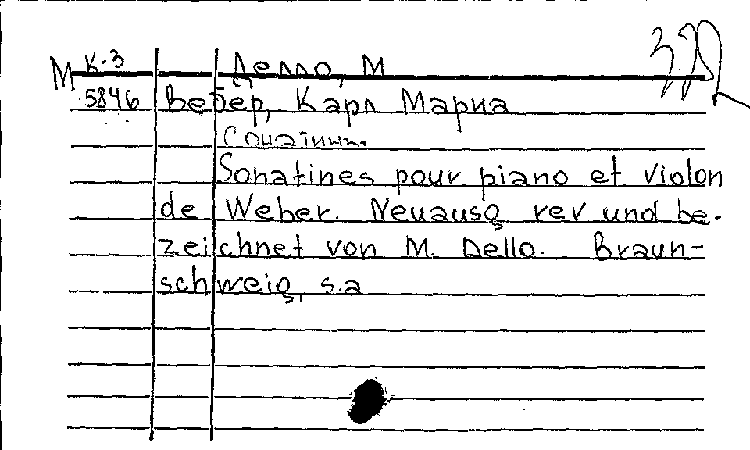 М К-3 Делло, М
5846 Вебер, Карл Мариа
Сонатины.
Sonatines pour piano et violon
de Weber. Neuausg rev und be-
zeichnet von M. Dello. Braun-
schweig, s.a